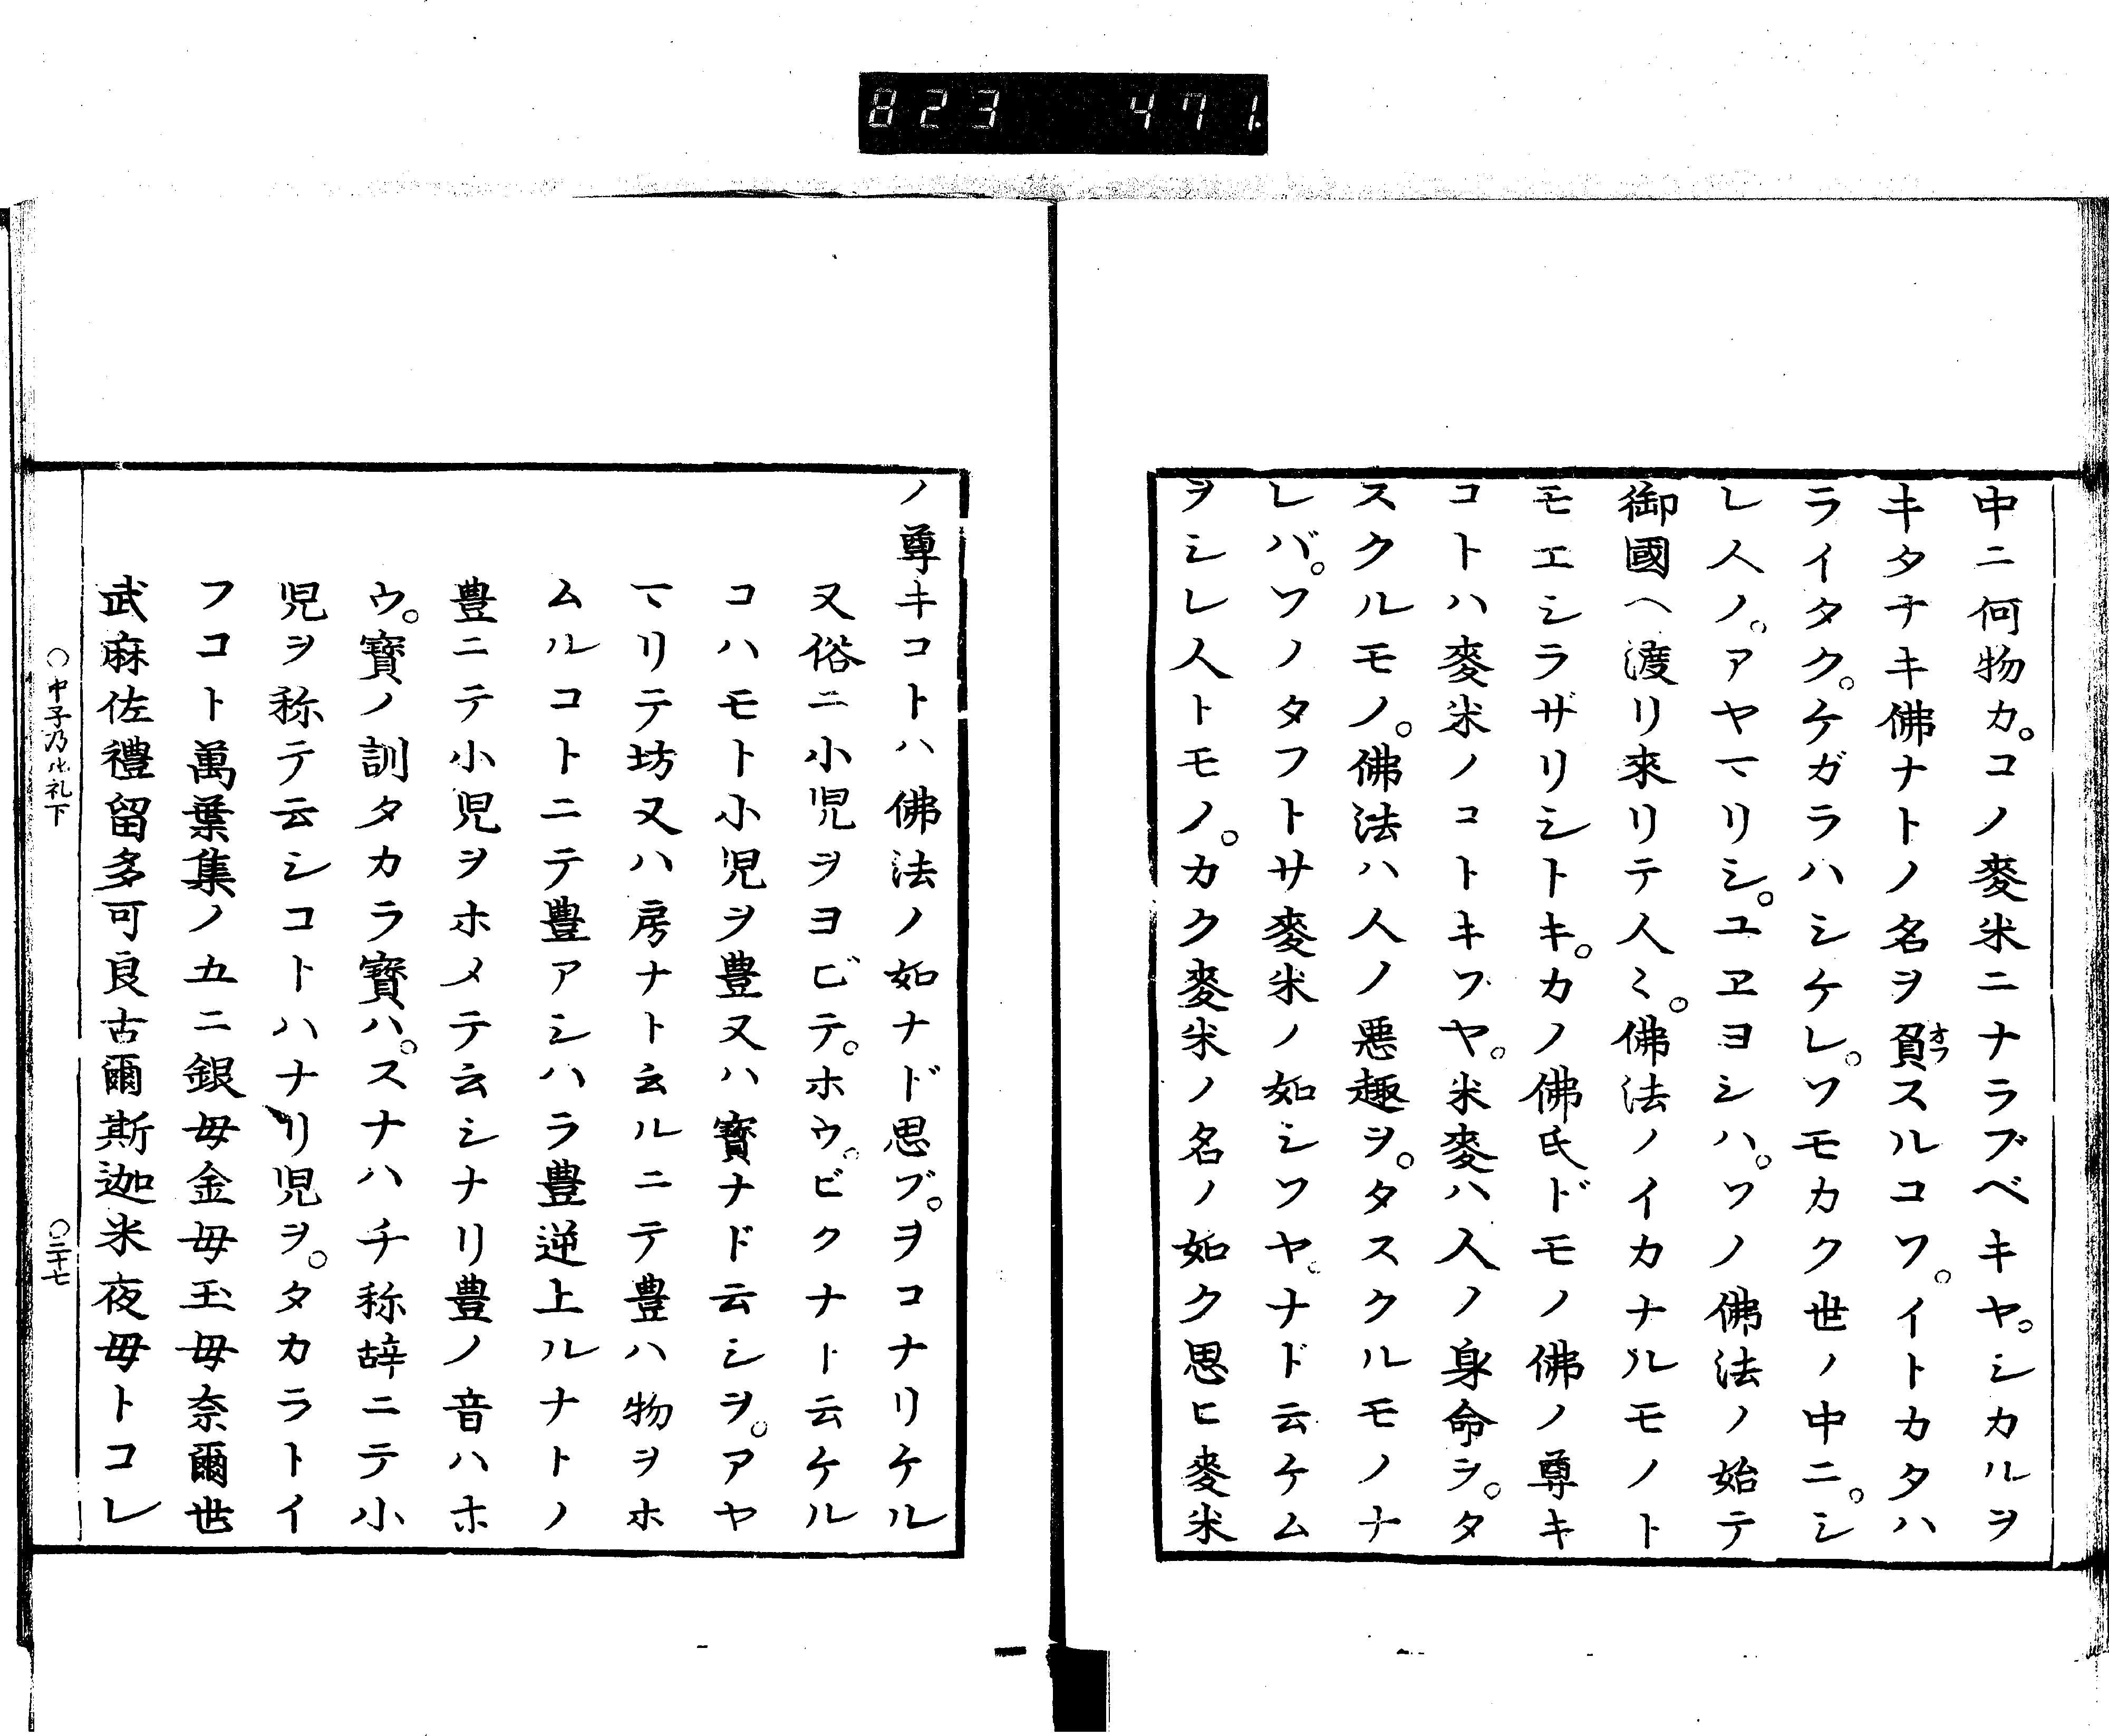 823 471.
中ニ何物カ。コノ麥米ニナラブベキヤ。シカルヲ
キタナキ佛ナトノ名ヲ負スルコソ。イトカタハ
オフ
ライタク。ケガラハシケレ。ソモカク世ノ中ニ。シ
レ人ノ。アヤマリシ。ユヱヨシハ。ソノ佛法ノ始テ
御國ヘ渡リ來リテ人〻。佛法ノイカナルモノト
モエシラザリシトキ。カノ佛氏ドモノ佛ノ尊キ
コトハ麥米ノコトキソヤ。米麥ハ人ノ身命ヲ。タ
スクルモノ。佛法ハ人ノ悪趣ヲ。タスクルモノナ
レバ。ソノタフトサ麥米ノ如シソヤ。ナド云ケム
ヲシレ人トモノ。カク麥米ノ名ノ如ク思ヒ麥米
ノ尊キコトハ佛法ノ如ナド思ブ。ヲコナリケル
又俗ニ小児ヲヨビテ。ホウ。ビクナト云ケル
コハモト小児ヲ豊又ハ寳ナド云シヲ。アヤ
マリテ坊又ハ房ナト云ルニテ豊ハ物ヲホ
ムルコトニテ豊アシハラ豊逆上ルナトノ
豊ニテ小児ヲホメテ云シナリ豊ノ音ハホ
ウ。寳ノ訓タカラ寳ハ。スナハチ称辞ニテ小
児ヲ称テ云シコトハナリ児ヲ。タカラトイ
フコト萬葉集ノ五ニ銀毋金毋玉毋奈爾世
武麻佐禮留多可良古爾斯迦米夜毋トコレ
〇中子乃比礼下
〇二十七